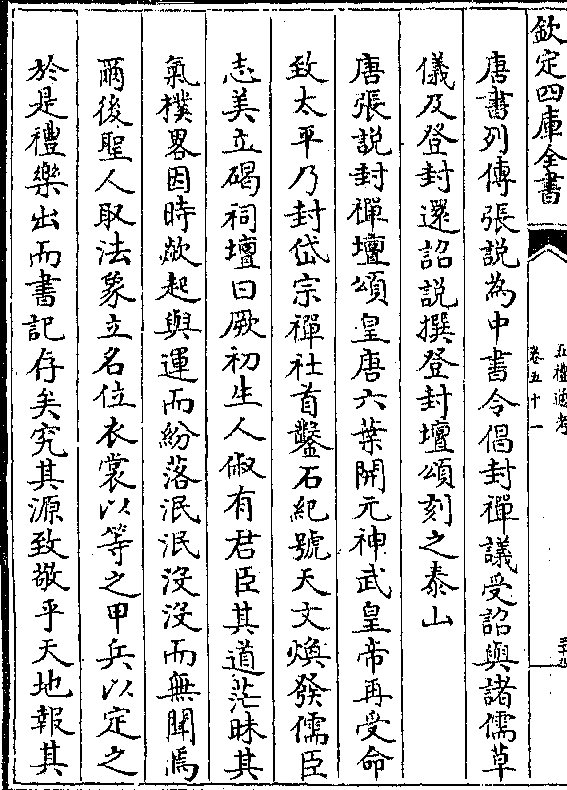 欽定四庫全書
五禮通考
卷五十一
唐書列傳張説為中書令倡封禪議受詔與諸儒草
儀及登封還詔説撰登封壇頌刻之泰山
唐張説封禪壇頌皇唐六葉開元神武皇帝再受命
致太平乃封岱宗禪社首鑿石紀號天文煥發儒臣
志美立碣祠壇曰厥初生人俶有君臣其道茫昧其
氣樸畧因時歘起與運而紛落泯泯没没而無聞焉
爾後聖人取法象立名位衣裳以等之甲兵以定之
於是禮樂出而書記存矣究其源致敬乎天地報其